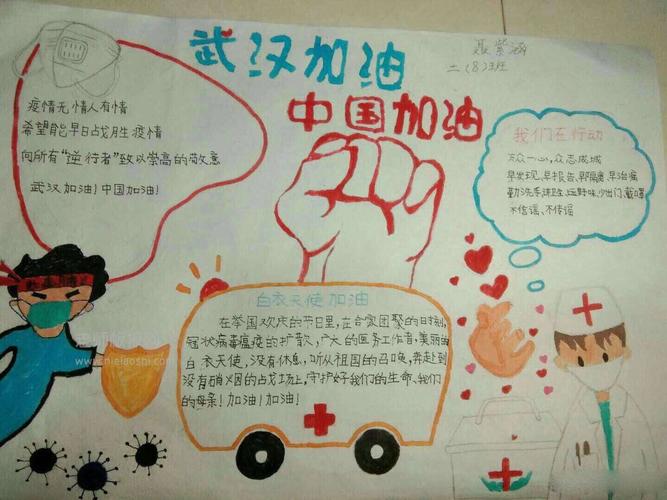 武汉加油
中国加油
聂紫涵
二(8)班
疫情无情人有情
希望能早日战胜疫情
向所有“逆行者”致以崇高的敬意
武汉加油!中国加油!
我们在行动
万众一心,众志成城
早发现、早报告、早隔离、早治病
勤洗手,讲卫生、远野味,少出门、戴口罩
不信谣、不传谣
白衣天使加油
在举国欢庆的节日里,在合家团聚的日子刻,
冠状病毒瘟疫的扩散,广大的医务工作者,美丽的
白衣天使,没有休息,听从祖国的召唤,奔赴到
没有硝烟的战场上,守护好我们的生命、我们
的母亲!加油!加油!